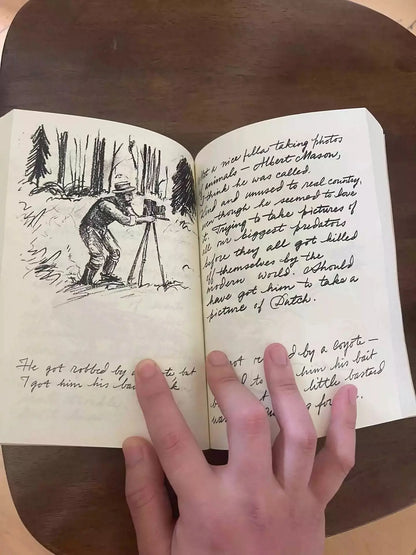 He got robbed by a
I got him his
a nice fella taking photos
animals – Albert Mason,
think he was called.
and unused to real country,
even though he seemed to love
it. Trying to take pictures of
all our biggest predators
before they all got killed
themselves by the
modern world. Should
have got him to take a
picture of Dutch.
got by a coyote –
to him his bait
little bastard
was